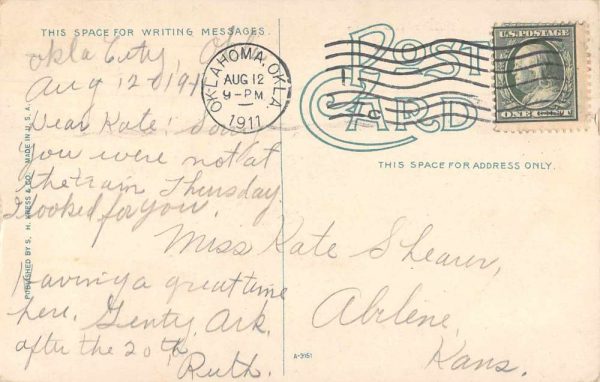 THIS SPACE FOR WRITING MESSAGES.
Okla City, Okla
Aug 12 1911
Dear Kate! Sorry
you were not at
the train Thursday.
I looked for you.
Having a great time
here. Genty, Ark.
after the 20th.
Ruth.
PUBLISHED BY S. H. KRESS & CO. MADE IN U.S.A.
OKLAHOMA, OKLA.
AUG 12
9-PM
1911
1
C
POST
CARD
U.S. POSTAGE
ONE CENT
THIS SPACE FOR ADDRESS ONLY.
Miss Kate Shearer,
Abilene,
Kans.
A-3151